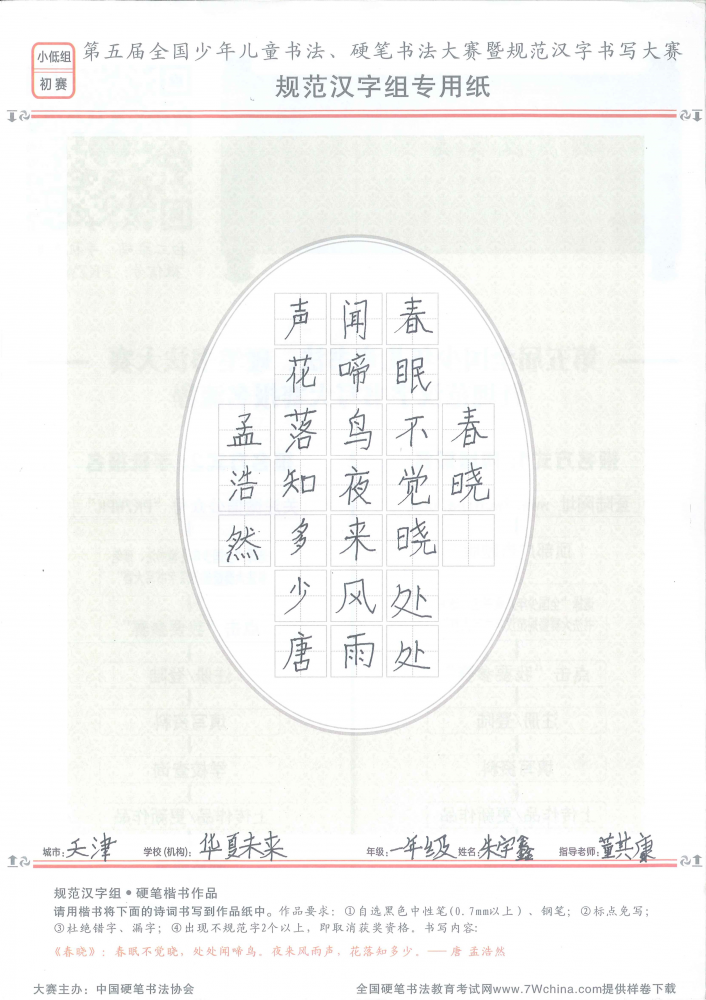 小低组
初赛
第五届全国少年儿童书法、硬笔书法大赛暨规范汉字书写大赛
规范汉字组专用纸
春晓
春眠不觉晓处处
闻啼鸟夜来风雨
声花落知多少唐
孟浩然
城市:天津 学校(机构):华夏未来 年级:一年级 姓名:朱宇鑫 指导老师:董其康
规范汉字组•硬笔楷书作品
请用楷书将下面的诗词书写到作品纸中。作品要求：①自选黑色中性笔(0.7mm以上)、钢笔；②标点免写；
③杜绝错字、漏字；④出现不规范字2个以上，即取消获奖资格。书写内容:
《春晓》：春眠不觉晓，处处闻啼鸟。夜来风雨声，花落知多少。—— 唐 孟浩然
大赛主办：中国硬笔书法协会 全国硬笔书法教育考试网www.7Wchina.com提供样卷下载